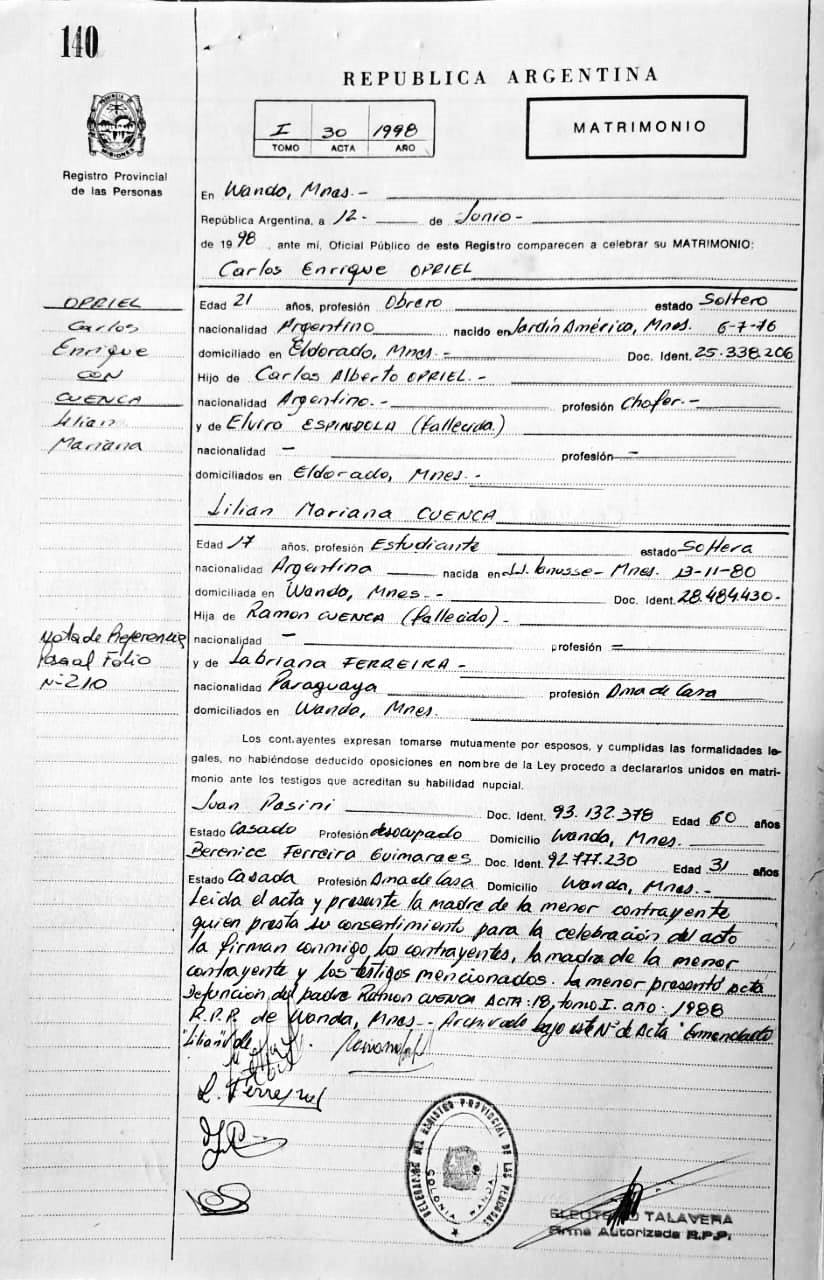 140
REPUBLICA ARGENTINA
I 30 1998
TOMO ACTA AÑO
MATRIMONIO
PROVINCIA DE MISIONES
Registro Provincial
de las Personas
En Wanda, Mnes.-
República Argentina, a 12.- de Junio-
de 1998, ante mí, Oficial Público de este Registro comparecen a celebrar su MATRIMONIO:
Carlos Enrique OPRIEL
OPRIEL
Carlos
Enrique
CON
CUENCA
Lilian
Mariana
Edad 21 años, profesión Obrero estado Soltero
nacionalidad Argentino nacido en Jardín América, Mnes. 6-7-76
domiciliado en Eldorado, Mnes.- Doc. Ident. 25.338.206
Hijo de Carlos Alberto OPRIEL.-
nacionalidad Argentino.- profesión Chofer.-
y de Elvira ESPINDOLA (fallecida)
nacionalidad - profesión -
domiciliados en Eldorado, Mnes.-
Lilian Mariana CUENCA
Edad 17 años, profesión Estudiante estado Soltera
nacionalidad Argentina nacida en Lanusse- Mnes. 13-11-80
domiciliada en Wanda, Mnes.- Doc. Ident. 28.484.430-
Hija de Ramon CUENCA (fallecido)-
nacionalidad - profesión =
y de Labriana FERREIRA-
nacionalidad Paraguaya profesión Ama de Casa
domiciliados en Wanda, Mnes.
Nota de Referencia
Pasa al Folio
Nº 210
Los contrayentes expresan tomarse mutuamente por esposos, y cumplidas las formalidades le-
gales, no habiéndose deducido oposiciones en nombre de la Ley procedo a declararlos unidos en matri-
monio ante los testigos que acreditan su habilidad nupcial.
Juan Pasini Doc. Ident. 93.132.378 Edad 60 años
Estado Casado Profesión desocupado Domicilio Wanda, Mnes.
Berenice Ferreira Guimaraes Doc. Ident. 92.777.230 Edad 31 años
Estado Casada Profesión Ama de Casa Domicilio Wanda, Mnes.-
Leída el acta y presente la madre de la menor contrayente
quien presta su consentimiento para la celebración del acto
la firman conmigo, los contrayentes, la madre de la menor
contrayente y los testigos mencionados. La menor presentó Acta
Defunción del padre Ramon CUENCA ACTA: 18, tomo I. año: 1988
R.P.P. de Wanda, Mnes- Archivado bajo este Nº de Acta "Enmendado
"Lilian" Vale.
L. Ferreira
DELEGACION DEL REGISTRO PROVINCIAL DE LAS PERSONAS
COLONIA WANDA
ELEUTERIO TALAVERA
Firma Autorizada R.P.P.